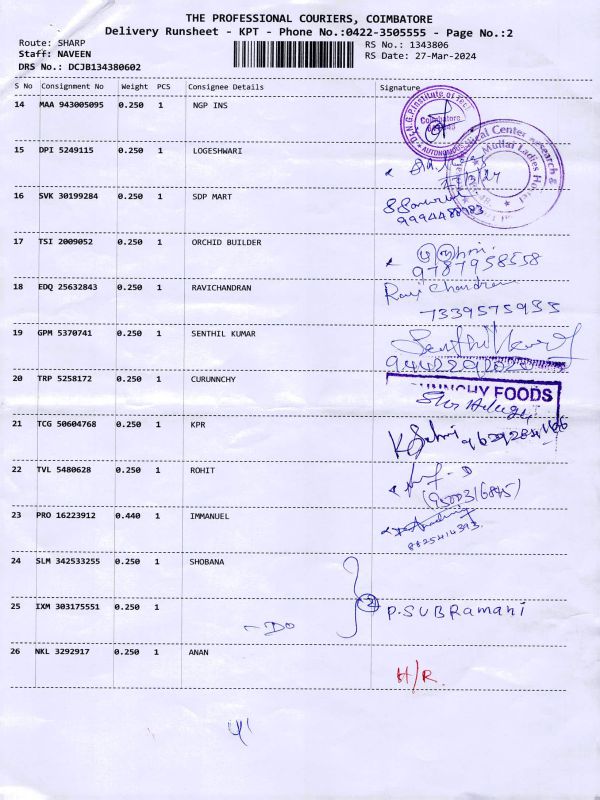 THE PROFESSIONAL COURIERS, COIMBATORE
Delivery Runsheet - KPT - Phone No.:0422-3505555 - Page No.:2
Route: SHARP
RS No.: 1343806
Staff: NAVEEN
RS Date: 27-Mar-2024
DRS No.: DCJB134380602
S No Consignment No Weight PCS Consignee Details Signature
14 MAA 943005095 0.250 1 NGP INS
15 DPI 5249115 0.250 1 LOGESHWARI
16 SVK 30199284 0.250 1 SDP MART
17 TSI 2009052 0.250 1 ORCHID BUILDER
9787958558
18 EDQ 25632843 0.250 1 RAVICHANDRAN Ravi Chandran
7339575935
19 GPM 5370741 0.250 1 SENTHIL KUMAR
20 TRP 5258172 0.250 1 CURUNNCHY
FOODS
21 TCG 50604768 0.250 1 KPR
22 TVL 5480628 0.250 1 ROHIT
(9500316845)
23 PRO 16223912 0.440 1 IMMANUEL
8825414393
24 SLM 342533255 0.250 1 SHOBANA
25 IXM 303175551 0.250 1 - Do 2 P.SUBRamani
26 NKL 3292917 0.250 1 ANAN
H/R.